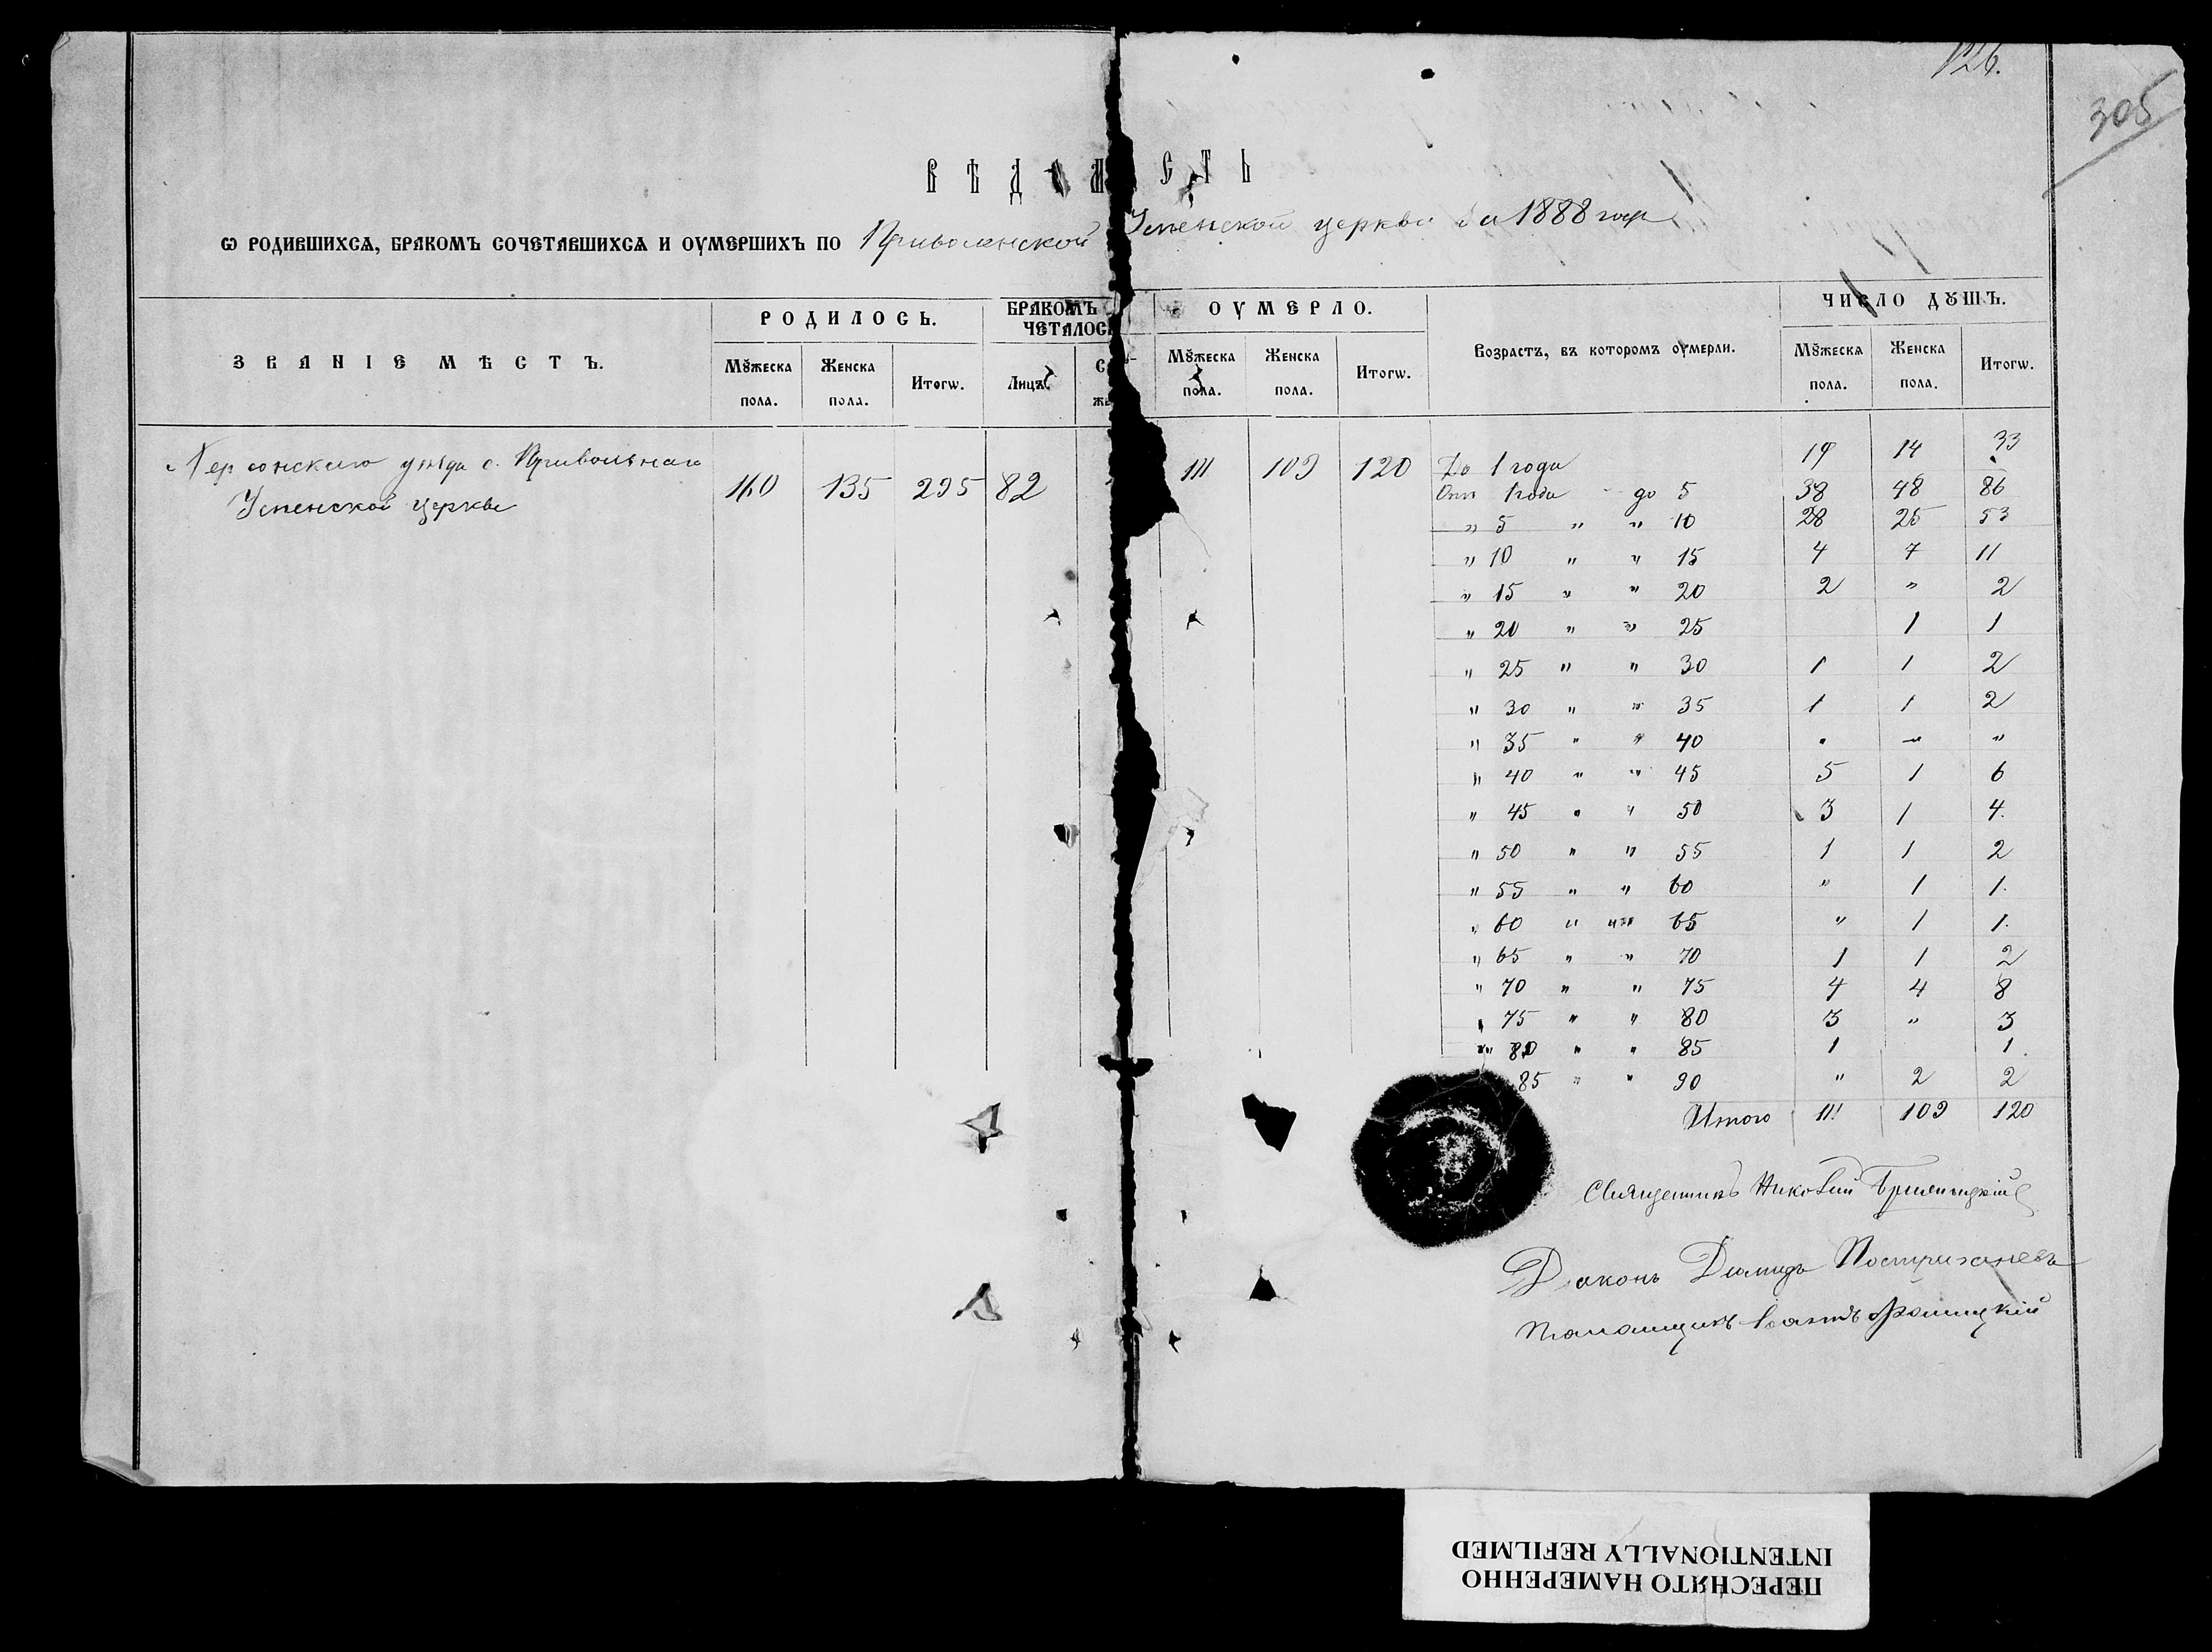 126.
305
ВѢДОМОСТЬ
Ѡ РОДИВШИХСѦ, БРАКОМЪ СОЧЕТАВШИХСѦ И ОУМЕРШИХЪ ПО Привольнской Успенской церкви за 1888 годъ
ЗВАНІЕ МѢСТЪ. РОДИЛОСЬ. БРАКОМЪ ЧЕТАЛОСЬ ОУМЕРЛО. Возрастъ, въ которомъ оумерли. ЧИСЛО ДꙊШЪ.
Мꙋжеска пола. Женска пола. Итогѡ. Лицъ Мꙋжеска пола. Женска пола. Итогѡ. Мꙋжеска пола. Женска пола. Итогѡ.
Херсонскаго уѣзда с. Привольнаго
Успенской церкви
160 135 295 82 111 109 120
До 1 года 19 14 33
Отъ 1 года до 5 38 48 86
" 5 " " 10 28 25 53
" 10 " " 15 4 7 11
" 15 " " 20 2 " 2
" 20 " " 25 1 1
" 25 " " 30 1 1 2
" 30 " " 35 1 1 2
" 35 " " 40 " " "
" 40 " " 45 5 1 6
" 45 " " 50 3 1 4.
" 50 " " 55 1 1 2
" 55 " " 60 " 1 1.
" 60 " " 65 " 1 1.
" 65 " " 70 1 1 2
" 70 " " 75 4 4 8
" 75 " " 80 3 " 3
" 80 " " 85 1 1.
85 " " 90 " 2 2
Итого 111 109 120
Священникъ Николай
Діаконъ Діомидъ
ПЕРЕСНЯТО НАМЕРЕННО
INTENTIONALLY REFILMED